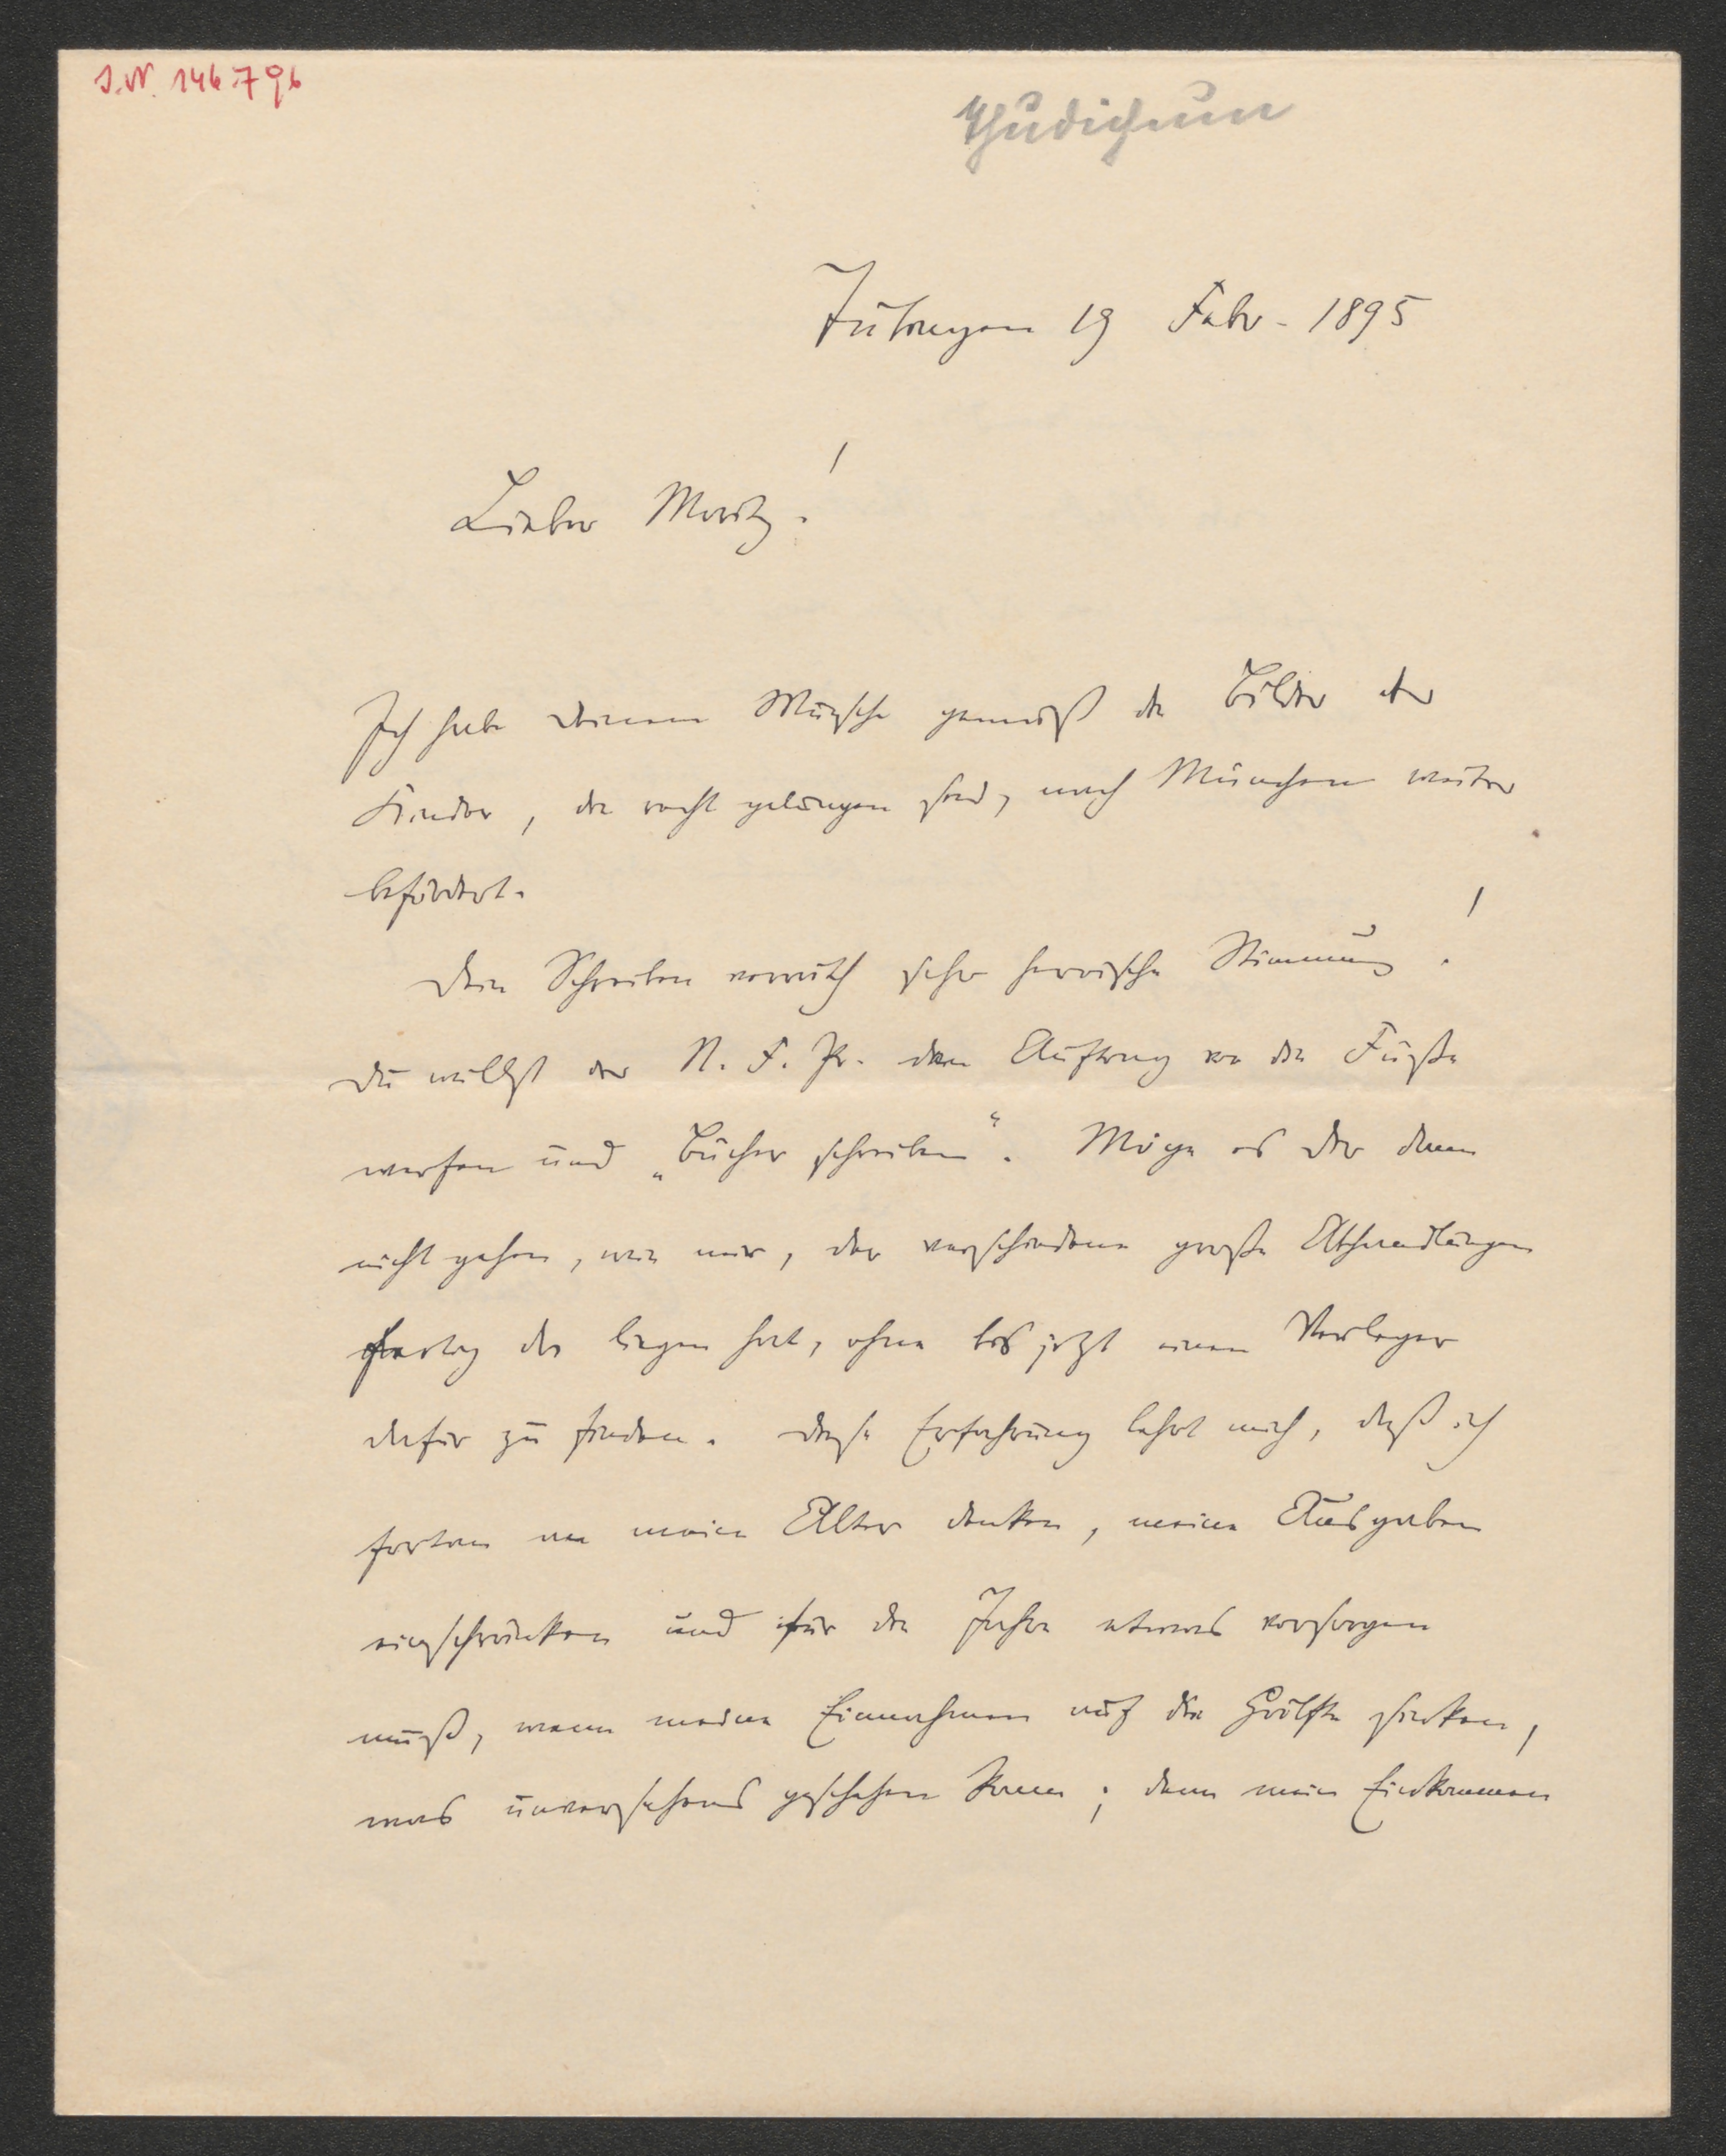 I.N. 146.796
Thudichum
Tübingen 19 Febr. 1895
Lieber Moritz!
Ich habe deinem Wunsche gemäß die Bilder der
Kinder, die recht gelungen sind, nach München weiter
befördert.
Dein Schreiben verräth sehr heroische Stimmung!
Du willst der N. F. Pr. den Auftrag vor die Füße
werfen und „Bücher schreiben“. Möge es Dir dann
nicht gehen, wie mir, der verschiedene große Abhandlungen
fertig da liegen hat, ohne bis jetzt einen Verleger
dafür zu finden. Diese Erfahrung lehrt mich, daß ich
fortan an mein Alter denken, meine Ausgaben
einschränken und für die Jahre etwas vorsorgen
muß, wann meine Einnahmen auf die Hälfte sinken,
was unversehens geschehen kann; denn mein Einkommen